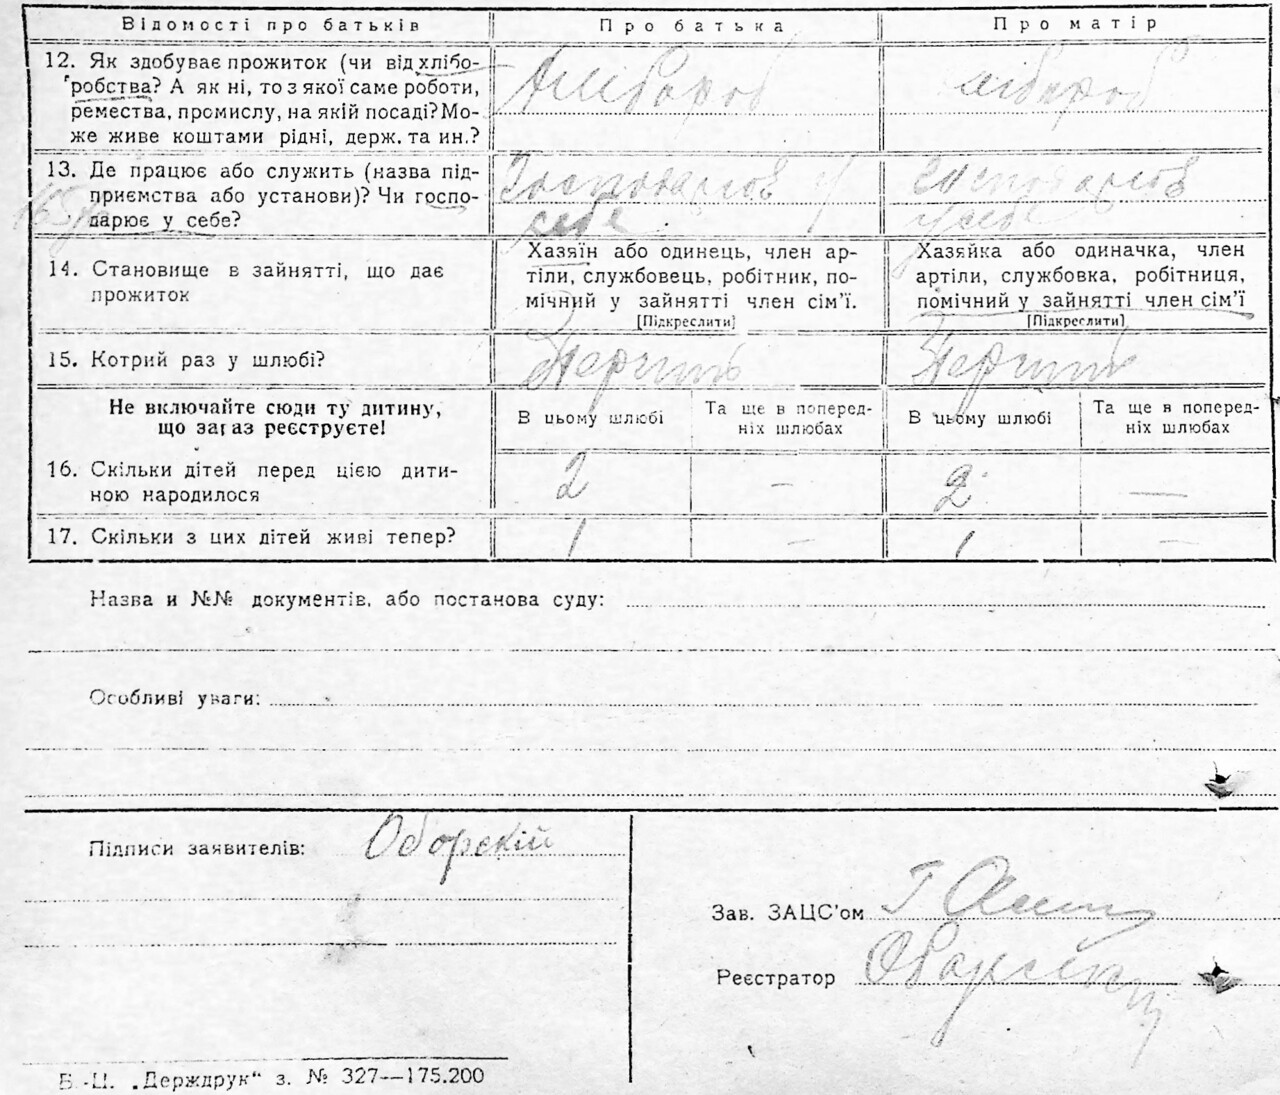 Відомості про батьків
Про батька
Про матір
12. Як здобуває прожиток (чи від хлібо-
робства? А як ні, то з якої саме роботи,
ремества, промислу, на якій посаді? Мо-
же живе коштами рідні, держ. та ин.?
Хлібороб
хлібороб
13. Де працює або служить (назва під-
приємства або установи)? Чи госпо-
дарює у себе?
Господарюв у
себе
господарюв
у себе
14. Становище в зайнятті, що дає
прожиток
Хазяїн або одинець, член ар-
тіли, службовець, робітник, по-
мічний у зайнятті член сім'ї.
[Підкреслити]
Хазяйка або одиначка, член
артіли, службовка, робітниця,
помічний у зайнятті член сім'ї
[Підкреслити]
15. Котрий раз у шлюбі?
Не включайте сюди ту дитину,
що зараз реєструєте!
В цьому шлюбі
Та ще в поперед-
ніх шлюбах
В цьому шлюбі
Та ще в поперед-
ніх шлюбах
16. Скільки дітей перед цією дити-
ною народилося
2
—
2
—
17. Скільки з цих дітей живі тепер?
1
—
1
—
Назва и №№ документів, або постанова суду:
Особливі уваги:
Підписи заявителів: Оборскій
Зав. ЗАЦС'ом
Реєстратор
Б.-Ц. „Держдрук“ з. № 327—175.200